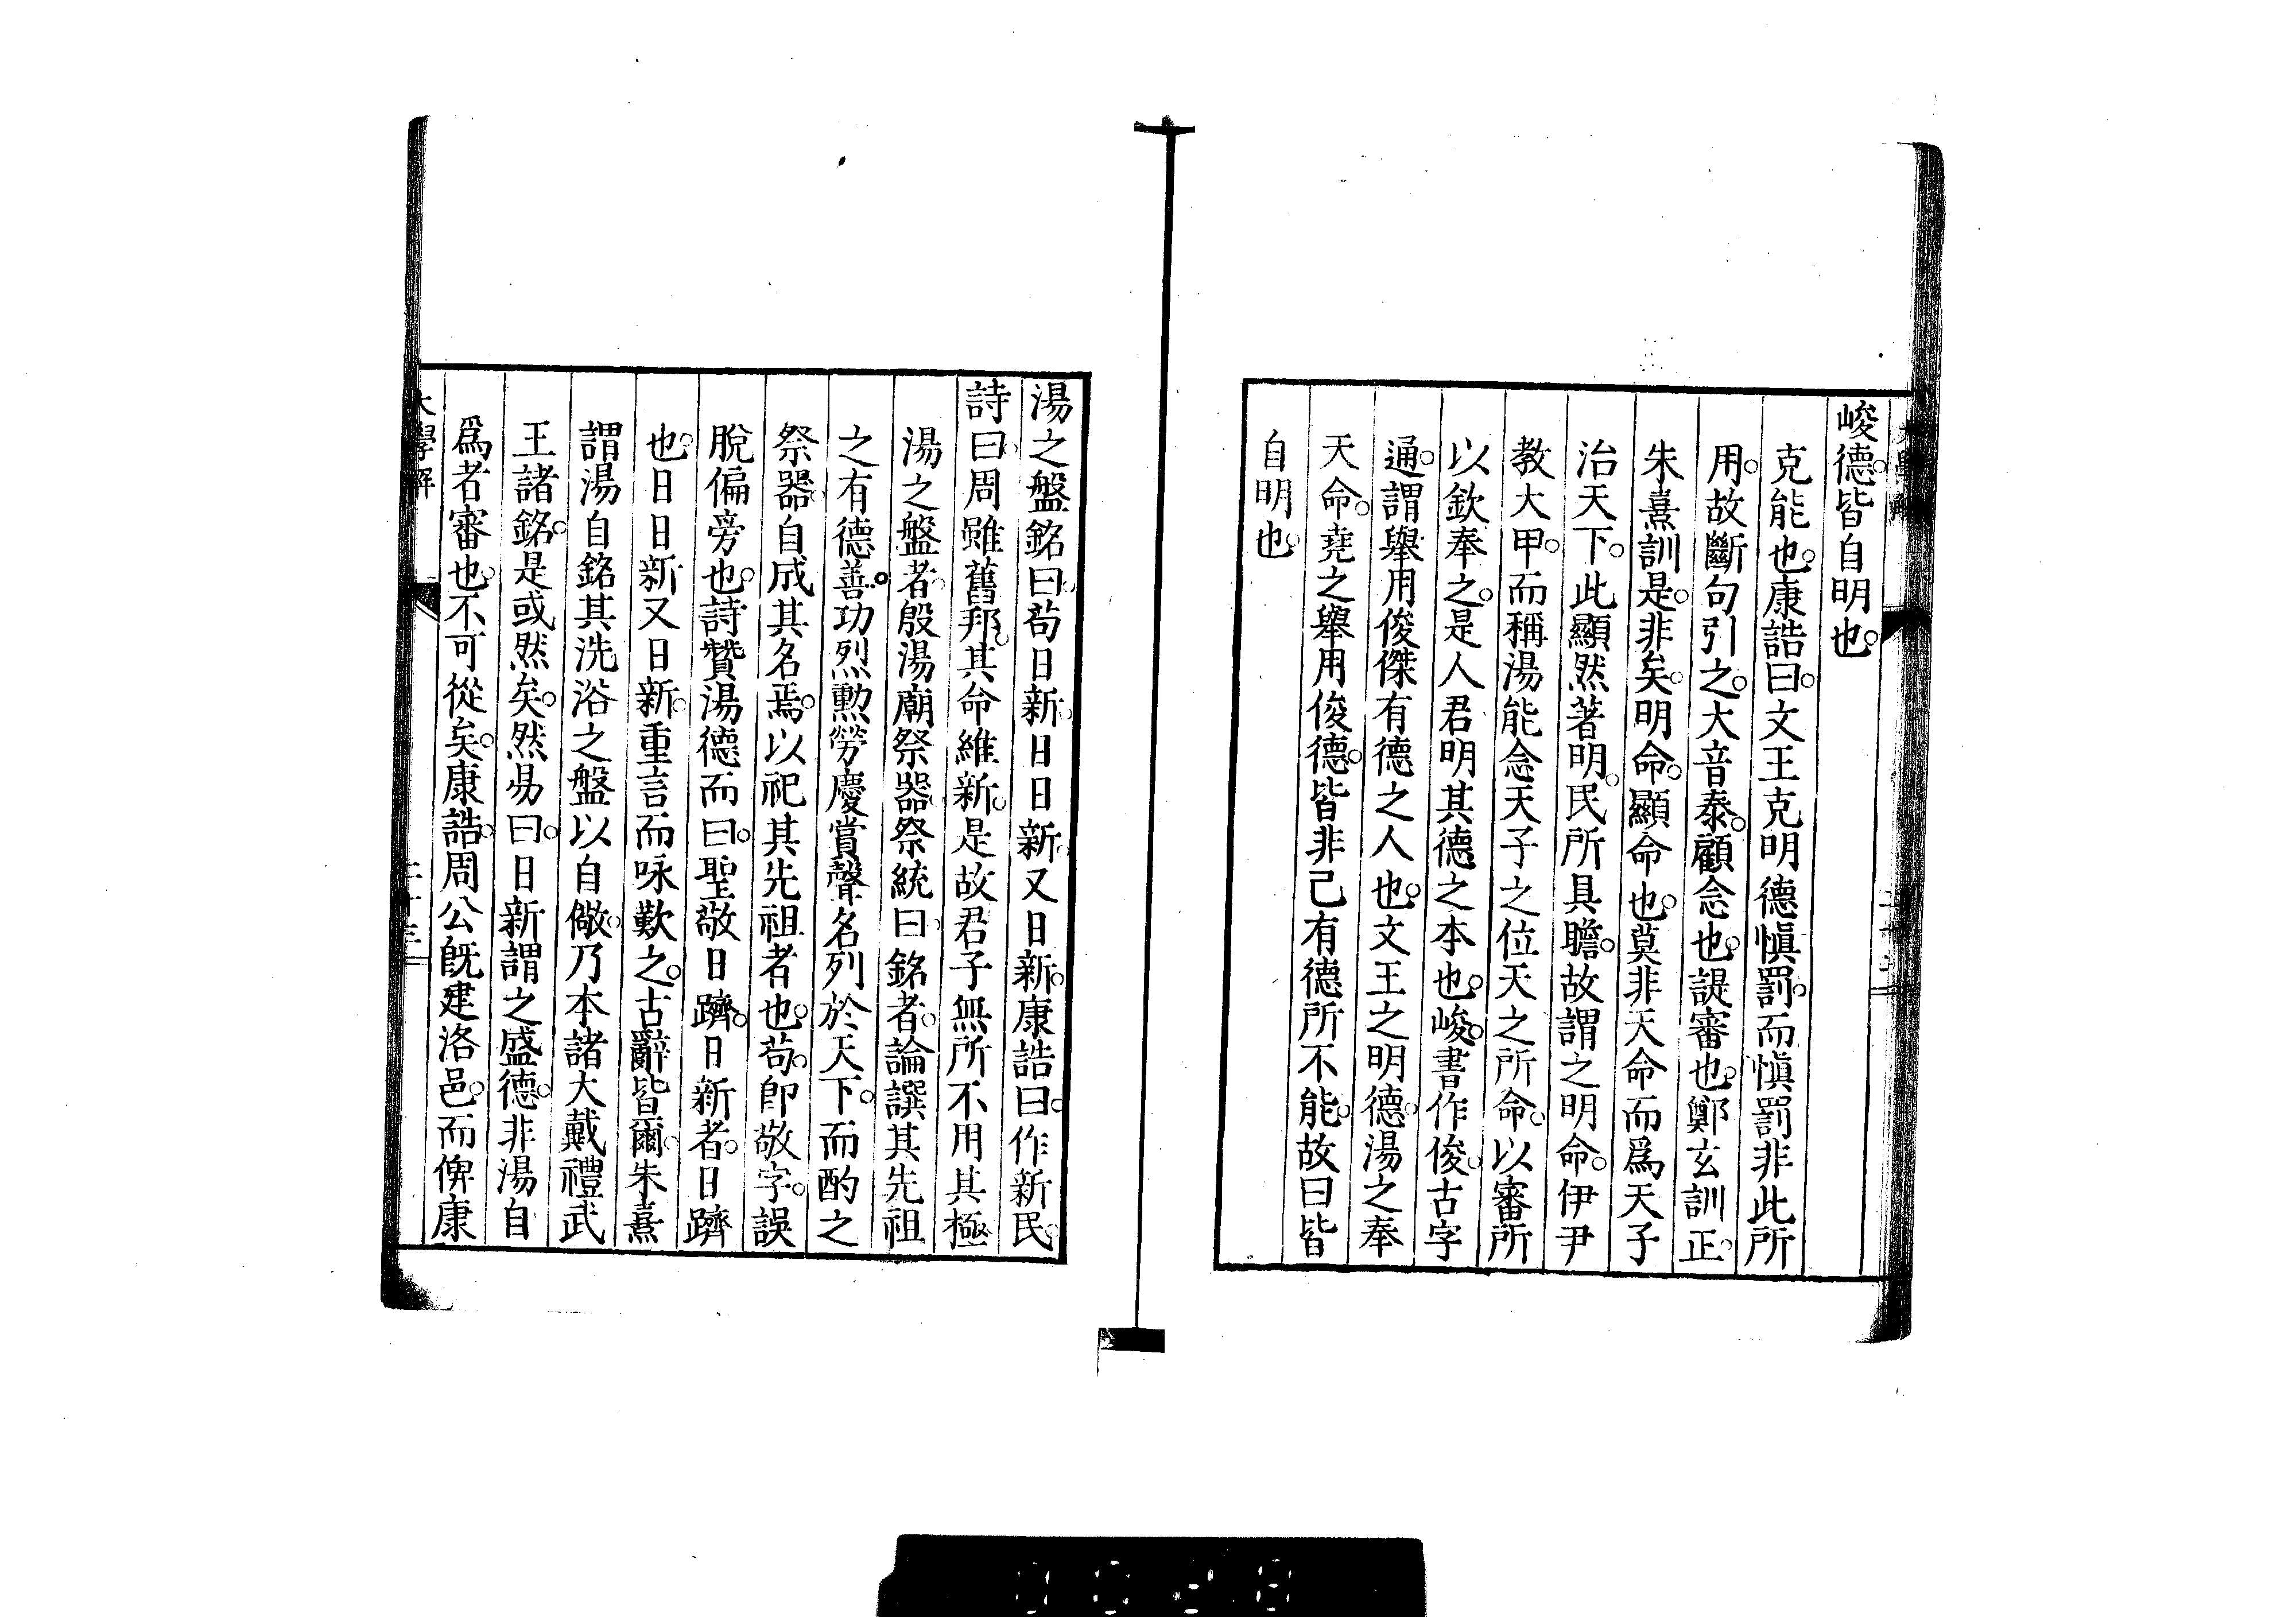 峻德。皆自明也。
克能也。康誥曰。文王克明德愼罰。而愼罰非此所
用。故斷句引之。大音泰。顧念也。諟審也。鄭玄訓正。
朱熹訓是。非矣。明命。顯命也。莫非天命而爲天子
治天下。此顯然著明。民所具瞻。故謂之明命。伊尹
教大甲。而稱湯能念天子之位天之所命。以審所
以欽奉之。是人君明其德之本也。峻。書作俊。古字
通。謂舉用俊傑有德之人也。文王之明德。湯之奉
天命。堯之舉用俊德。皆非己有德所不能。故曰皆
自明也。
湯之盤銘曰。苟日新。日日新。又日新。康誥曰。作新民。
詩曰。周雖舊邦。其命維新。是故君子無所不用其極
湯之盤者。殷湯廟祭器。祭統曰。銘者。論譔其先祖
之有德善。功烈勳勞慶賞聲名列於天下。而酌之
祭器。自成其名焉。以祀其先祖者也。苟。卽敬字。誤
脫偏旁也。詩贊湯德而曰。聖敬日躋。日新者。日躋
也。日日新又日新。重言而咏歎之。古辭皆爾。朱熹
謂湯自銘其洗浴之盤以自儆。乃本諸大戴禮武
王諸銘。是或然矣。然易曰。日新謂之盛德。非湯自
爲者審也。不可從矣。康誥。周公既建洛邑。而俾康
大學解
二十三